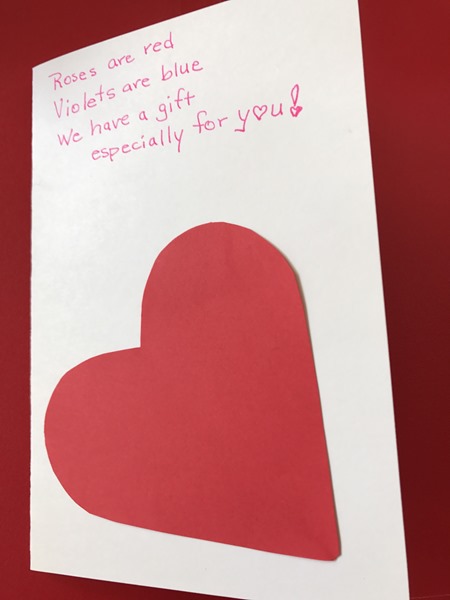 Roses are red
Violets are blue
We have a gift
especially for you!